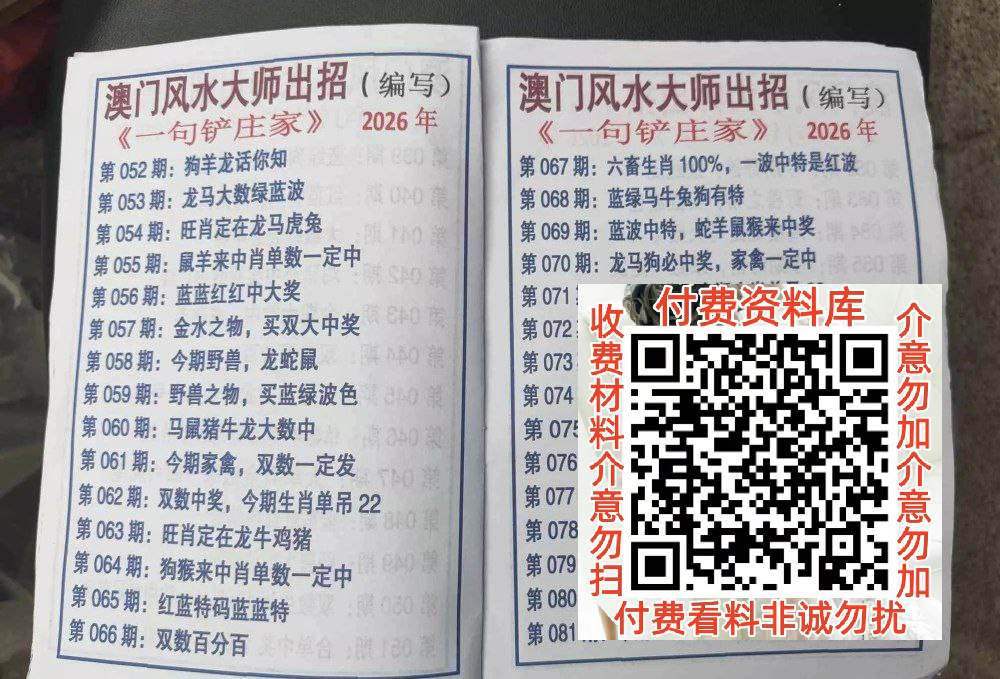 澳门风水大师出招（编写）
《一句铲庄家》 2026 年
第 052 期：狗羊龙话你知
第 053 期：龙马大数绿蓝波
第 054 期：旺肖定在龙马虎兔
第 055 期：鼠羊来中肖单数一定中
第 056 期：蓝蓝红红中大奖
第 057 期：金水之物，买双大中奖
第 058 期：今期野兽，龙蛇鼠
第 059 期：野兽之物，买蓝绿波色
第 060 期：马鼠猪牛龙大数中
第 061 期：今期家禽，双数一定发
第 062 期：双数中奖，今期生肖单吊 22
第 063 期：旺肖定在龙牛鸡猪
第 064 期：狗猴来中肖单数一定中
第 065 期：红蓝特码蓝蓝特
第 066 期：双数百分百
澳门风水大师出招（编写）
《一句铲庄家》 2026 年
第 067 期：六畜生肖 100%，一波中特是红波
第 068 期：蓝绿马牛兔狗有特
第 069 期：蓝波中特，蛇羊鼠猴来中奖
第 070 期：龙马狗必中奖，家禽一定中
第 071
第 072
第 073
第 074
第 075
第 076
第 077
第 078
第 079
第 080
第 081
付费资料库
收费材料介意勿扫
介意勿加介意勿加
付费看料非诚勿扰